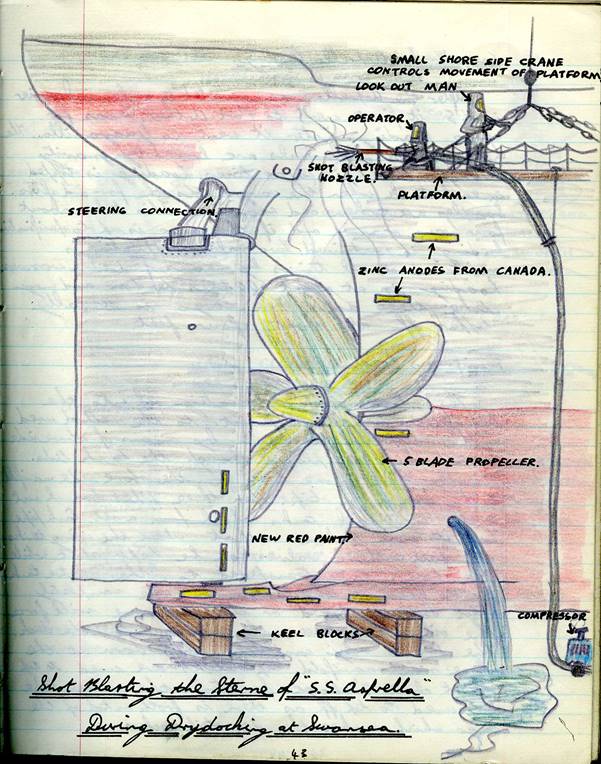 SMALL SHORE SIDE CRANE
CONTROLS MOVEMENT OF PLATFORM
LOOK OUT MAN
OPERATOR
SHOT BLASTING
NOZZLE.
PLATFORM.
STEERING CONNECTION
ZINC ANODES FROM CANADA.
5 BLADE PROPELLER.
NEW RED PAINT
COMPRESSOR
KEEL BLOCKS
Shot Blasting the Sterne of "S.S.
During Drydocking at Swansea.
43